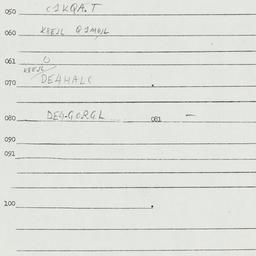 050 C1KQA.T
060 KEEJL Q1MOJL
061 O
KEEJL
070 DE4HALC
080 DE4-GORGL 081 —
090
091
100